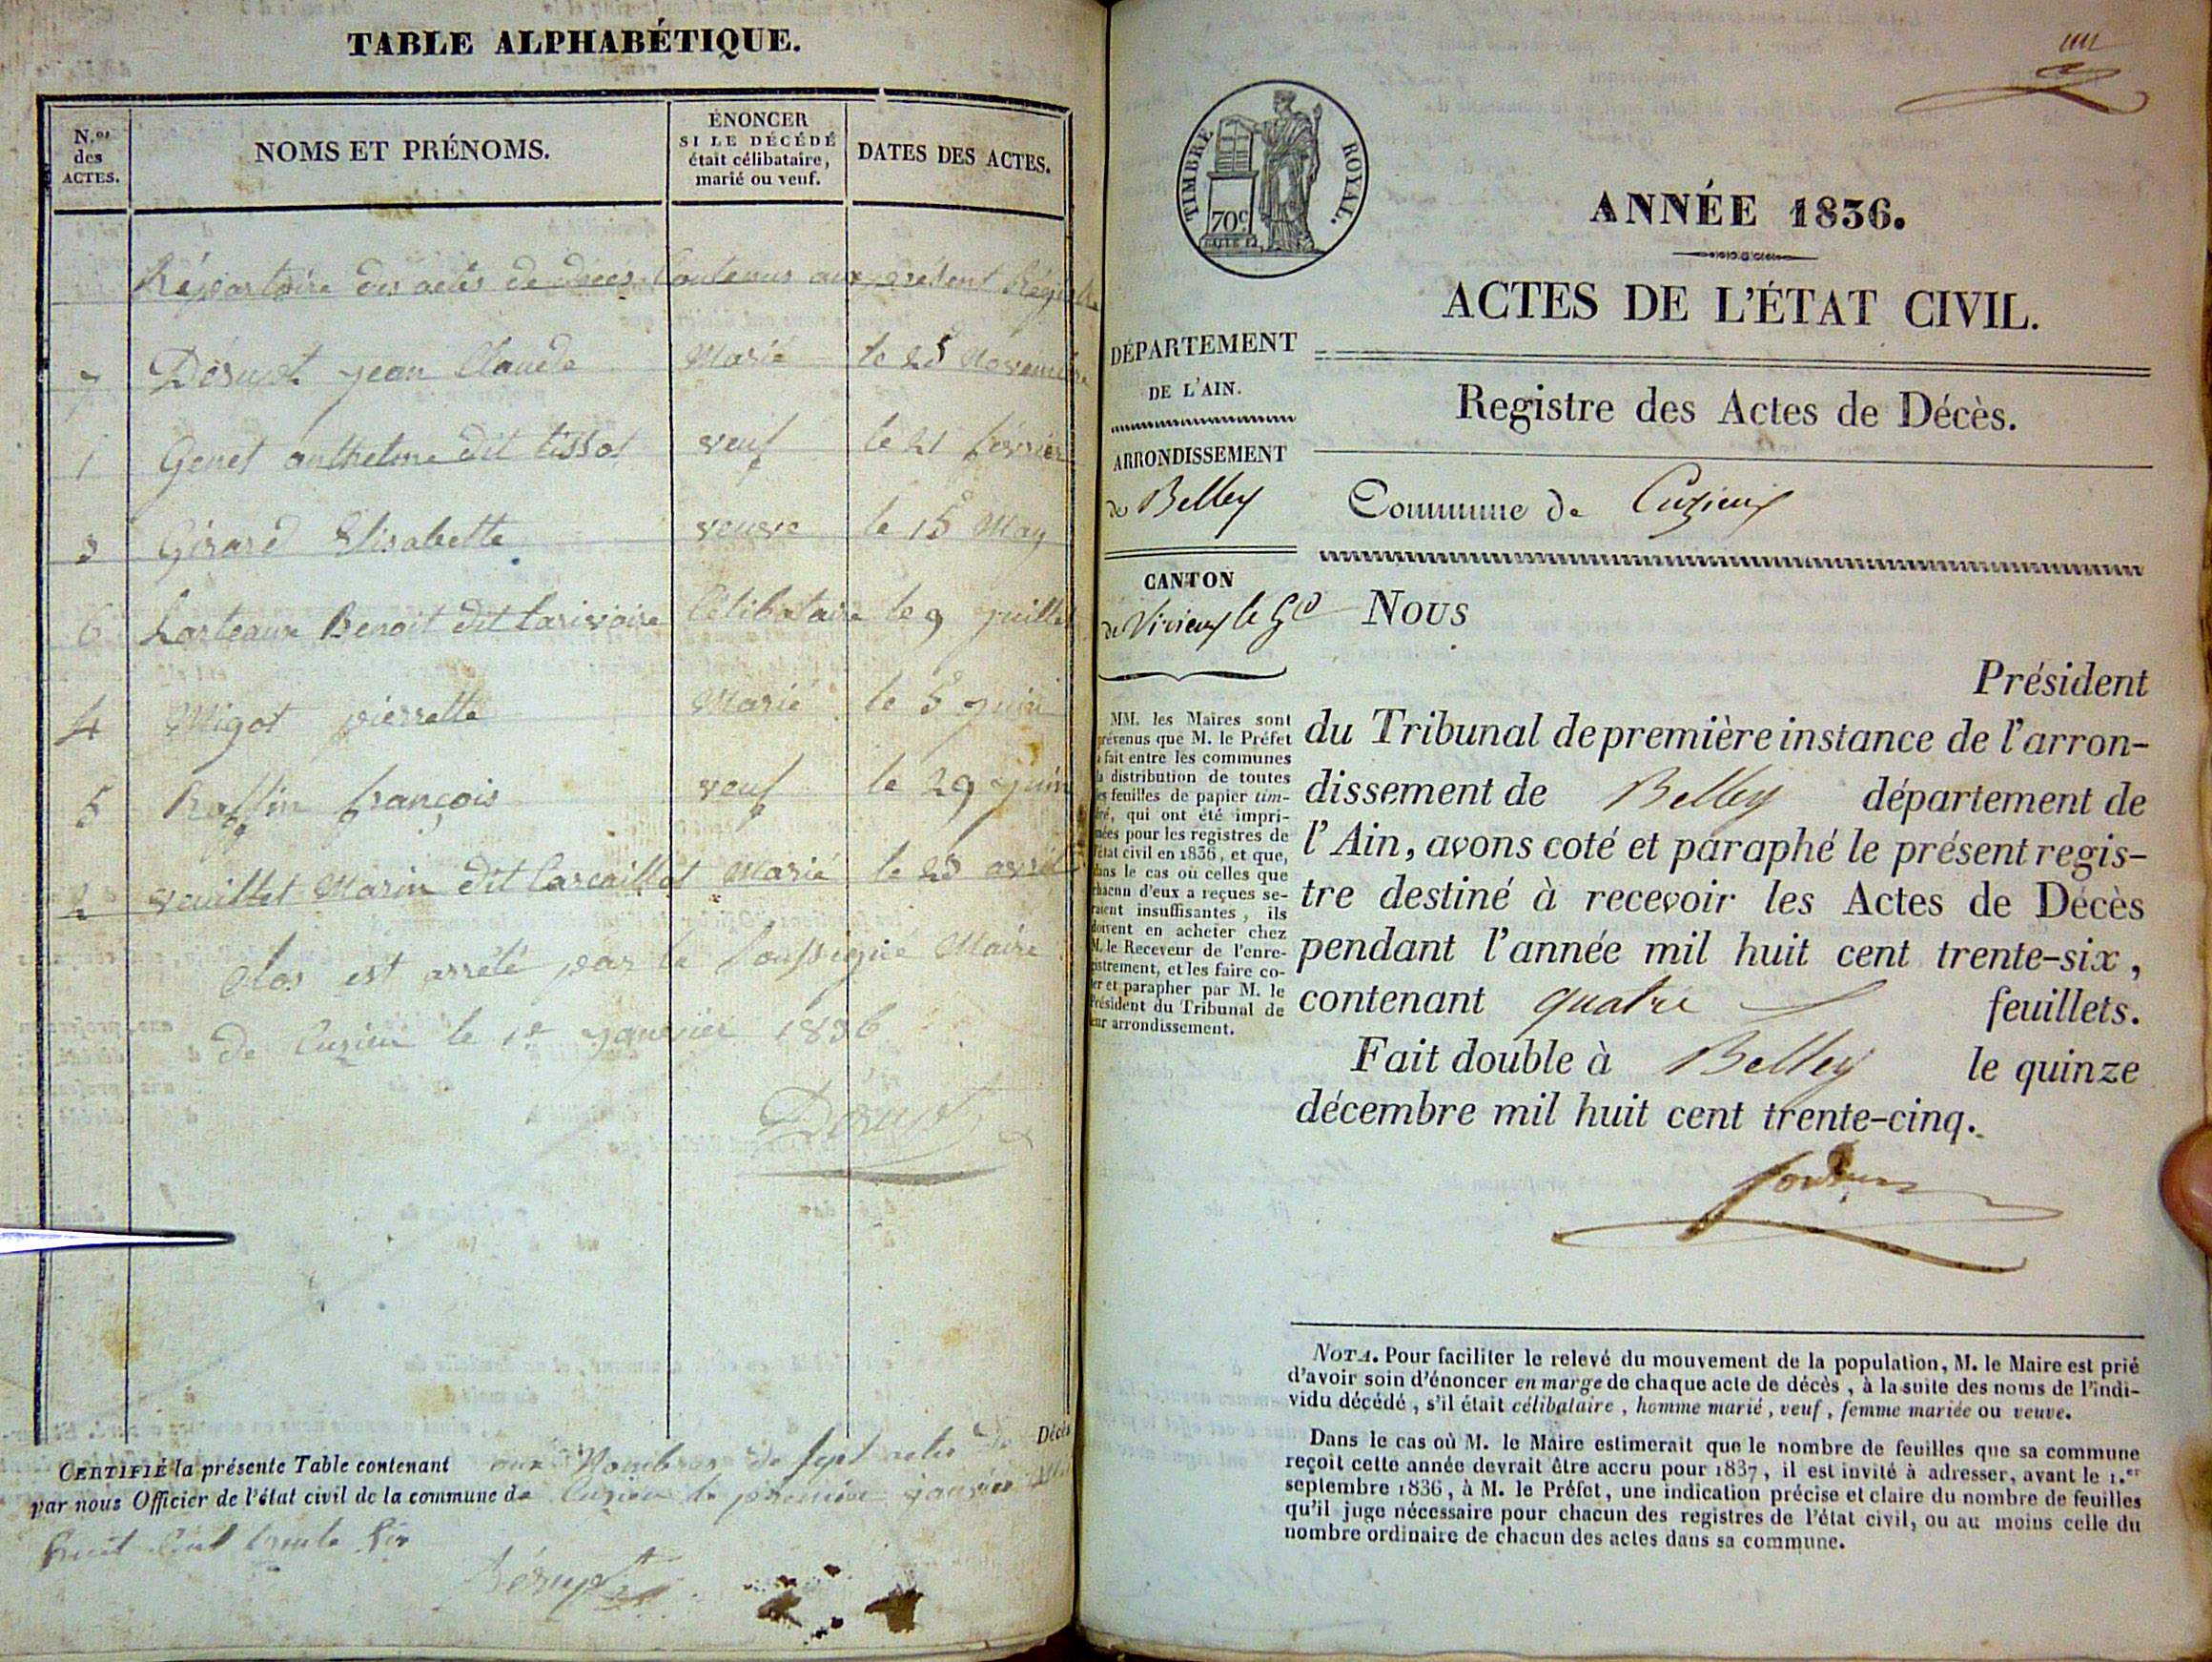 TABLE ALPHABÉTIQUE.
N.os des ACTES.
NOMS ET PRÉNOMS.
ÉNONCER SI LE DÉCÉDÉ était célibataire, marié ou veuf.
DATES DES ACTES.
Répertoire des actes de décès Contenus aux présent Régistre
7 Dérupt jean Claude Marié le 25 Novembre
1 Genet anthelme dit tissot veuf le 21 février
3 Girard Elisabette veuve le 15 May
6 Larteaux Benoit dit larivoire Célibataire le 9 juillet
4 Migot pierrette Marié le 5 juin
5 Raffin françois veuf le 29 juin
2 veuillet Marin dit Carcaillet Marié le 23 avril
Clos est arrêté par le Soussigné Maire
de Cuzieu le 1er janvier 1836
Dérupt
Décès
CERTIFIÉ la présente Table contenant aux Nombres de sept actes de
par nous Officier de l'état civil de la commune de Cuzieu le premier janvier Mil
huit Cent trente Six
Dérupt
TIMBRE ROYAL.
70c
ANNÉE 1836.
ACTES DE L'ÉTAT CIVIL.
DÉPARTEMENT
DE L'AIN.
ARRONDISSEMENT
de Belley
CANTON
de Virieux le Gd
MM. les Maires sont
prévenus que M. le Préfet
a fait entre les communes
la distribution de toutes
les feuilles de papier tim-
bré, qui ont été impri-
mées pour les registres de
l'état civil en 1836, et que,
dans le cas où celles que
chacun d'eux a reçues se-
raient insuffisantes, ils
doivent en acheter chez
M. le Receveur de l'enre-
gistrement, et les faire co-
ter et parapher par M. le
Président du Tribunal de
leur arrondissement.
Registre des Actes de Décès.
Commune de Cuzieux
Nous
Président
du Tribunal de première instance de l'arron-
dissement de Belley département de
l'Ain, avons coté et paraphé le présent regis-
tre destiné à recevoir les Actes de Décès
pendant l'année mil huit cent trente-six,
contenant quatre feuillets.
Fait double à Belley le quinze
décembre mil huit cent trente-cinq.
NOTA. Pour faciliter le relevé du mouvement de la population, M. le Maire est prié
d'avoir soin d'énoncer en marge de chaque acte de décès, à la suite des noms de l'indi-
vidu décédé, s'il était célibataire, homme marié, veuf, femme mariée ou veuve.
Dans le cas où M. le Maire estimerait que le nombre de feuilles que sa commune
reçoit cette année devrait être accru pour 1837, il est invité à adresser, avant le 1.er
septembre 1836, à M. le Préfet, une indication précise et claire du nombre de feuilles
qu'il juge nécessaire pour chacun des registres de l'état civil, ou au moins celle du
nombre ordinaire de chacun des actes dans sa commune.